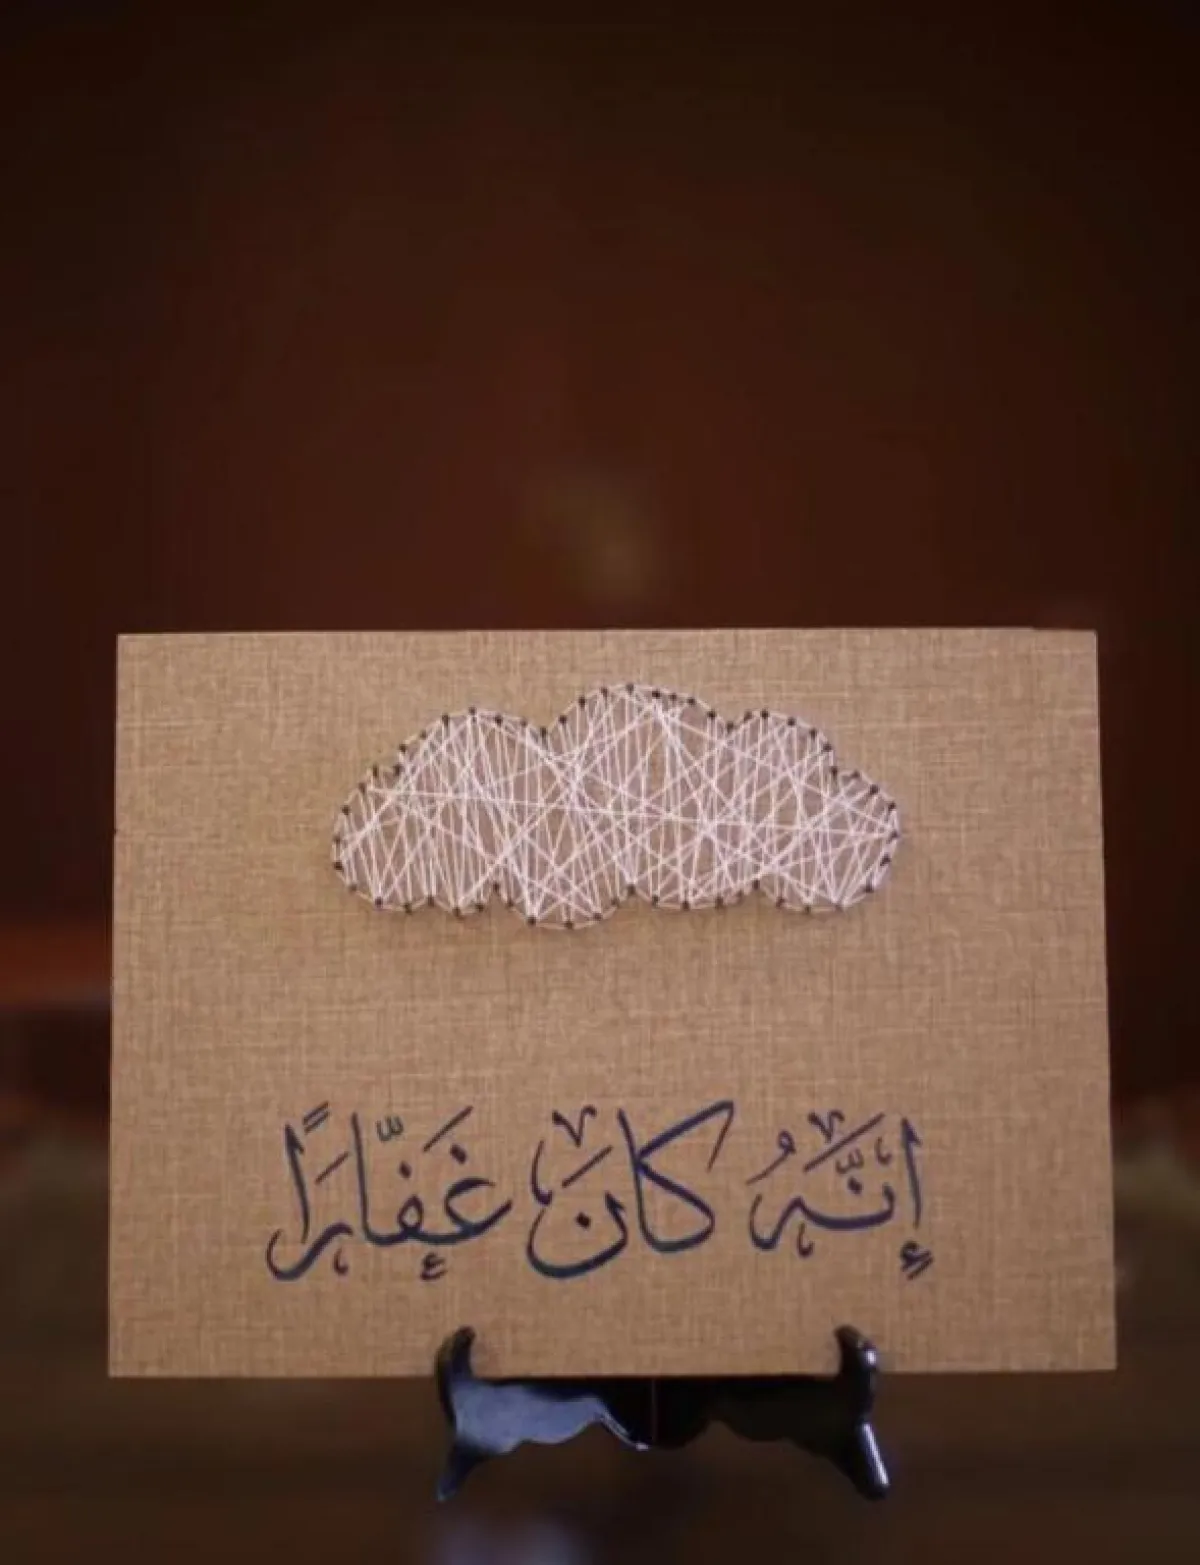 إِنَّهُ كَانَ غَفَّارًا